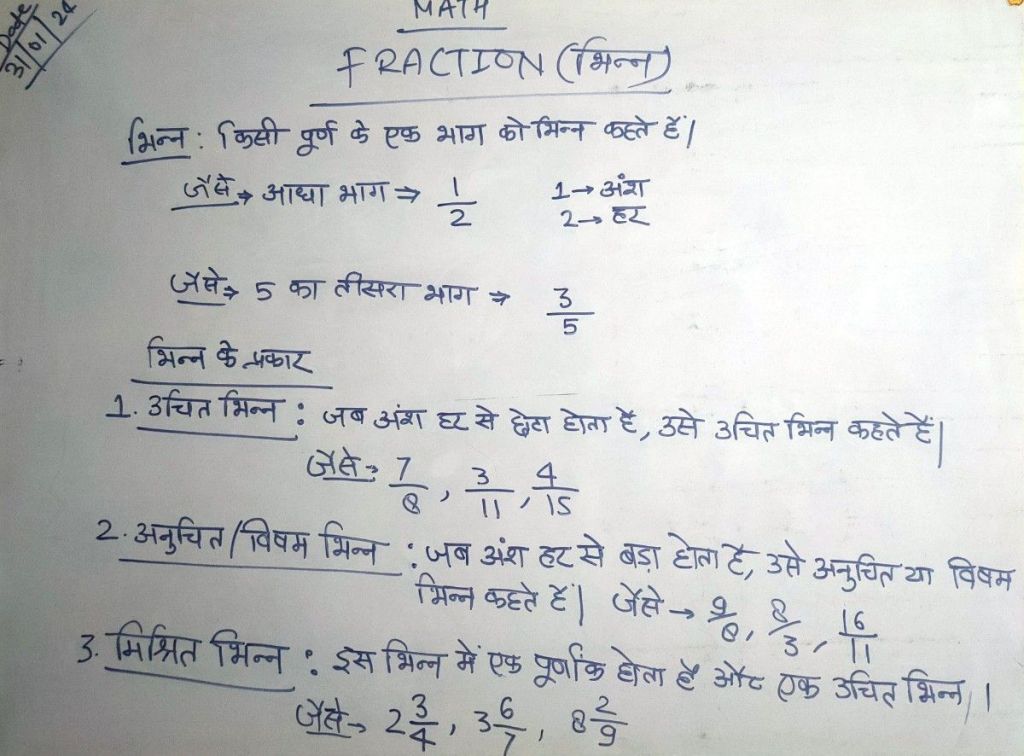 Date
31/01/24
MATH
FRACTION (भिन्न)
भिन्न : किसी पूर्ण के एक भाग को भिन्न कहते हैं।
जैसे → आधा भाग ⇒ 1/2 1 → अंश
2 → हर
जैसे → 5 का तीसरा भाग ⇒ 3/5
भिन्न के प्रकार
1. उचित भिन्न : जब अंश हर से छोटा होता है, उसे उचित भिन्न कहते हैं।
जैसे → 7/8, 3/11, 4/15
2. अनुचित/विषम भिन्न : जब अंश हर से बड़ा होता है, उसे अनुचित या विषम
भिन्न कहते हैं। जैसे → 9/8, 8/3, 16/11
3. मिश्रित भिन्न : इस भिन्न में एक पूर्णांक होता है और एक उचित भिन्न।
जैसे → 2 3/4, 3 6/7, 8 2/9